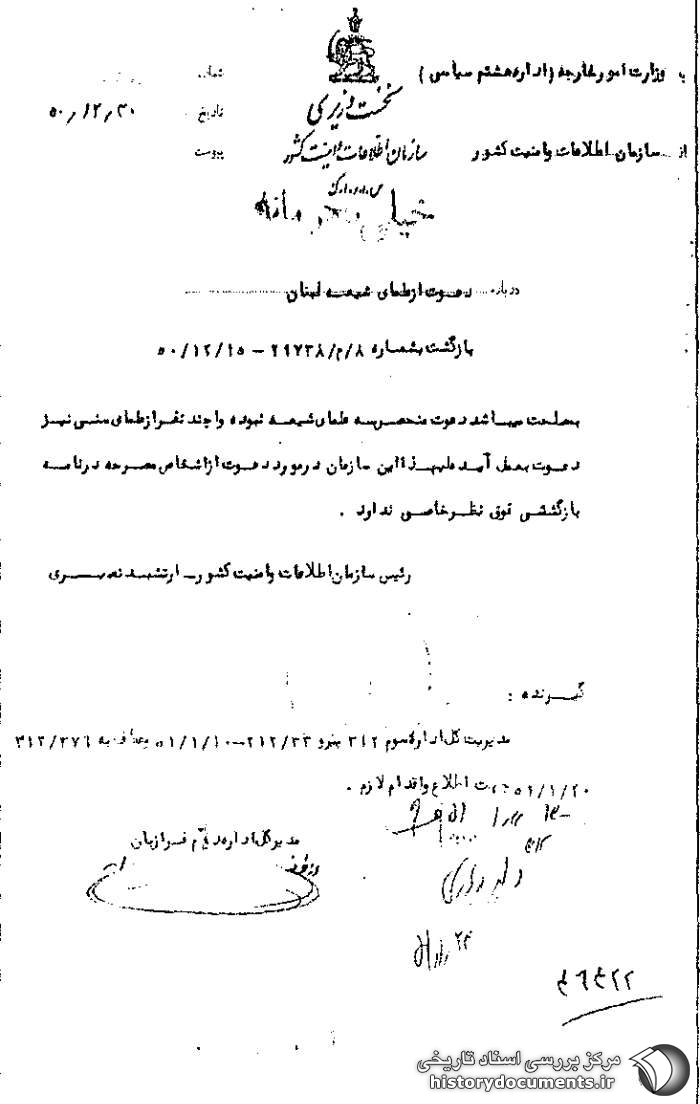 به وزارت امور خارجه (اداره هشتم سیاسی)
از سازمان اطلاعات و امنیت کشور
نخست وزیری
سازمان اطلاعات و امنیت کشور
س.ا.و.ا.ک
شماره
تاریخ ۵۰/۱۲/۳۰
پیوست
خیلی محرمانه
درباره دعوت از علمای شیعه لبنان
بازگشت بشماره ۸/م/۲۹۷۳۸ – ۵۰/۱۲/۱۵
بمصلحت میباشد دعوت منحصر به علمای شیعه نبوده و از چند نفر از علمای سنی نیز
دعوت بعمل آید علیهذا این سازمان در مورد دعوت از اشخاص مصرحه در نامه
بازگشتی فوق نظر خاصی ندارد .
رئیس سازمان اطلاعات و امنیت کشور – ارتشبد نصیری
گیرنده :
مدیریت کل اداره سوم ۳۱۲ پیرو ۲۱۲/۳۳–۵۱/۱/۱۰ به ۳۱۲/۳۷۶
۵۱/۱/۲۰ جهت اطلاع و اقدام لازم .
مدیر کل اداره دوم فرازیان
مرکز بررسی اسناد تاریخی
historydocuments.ir